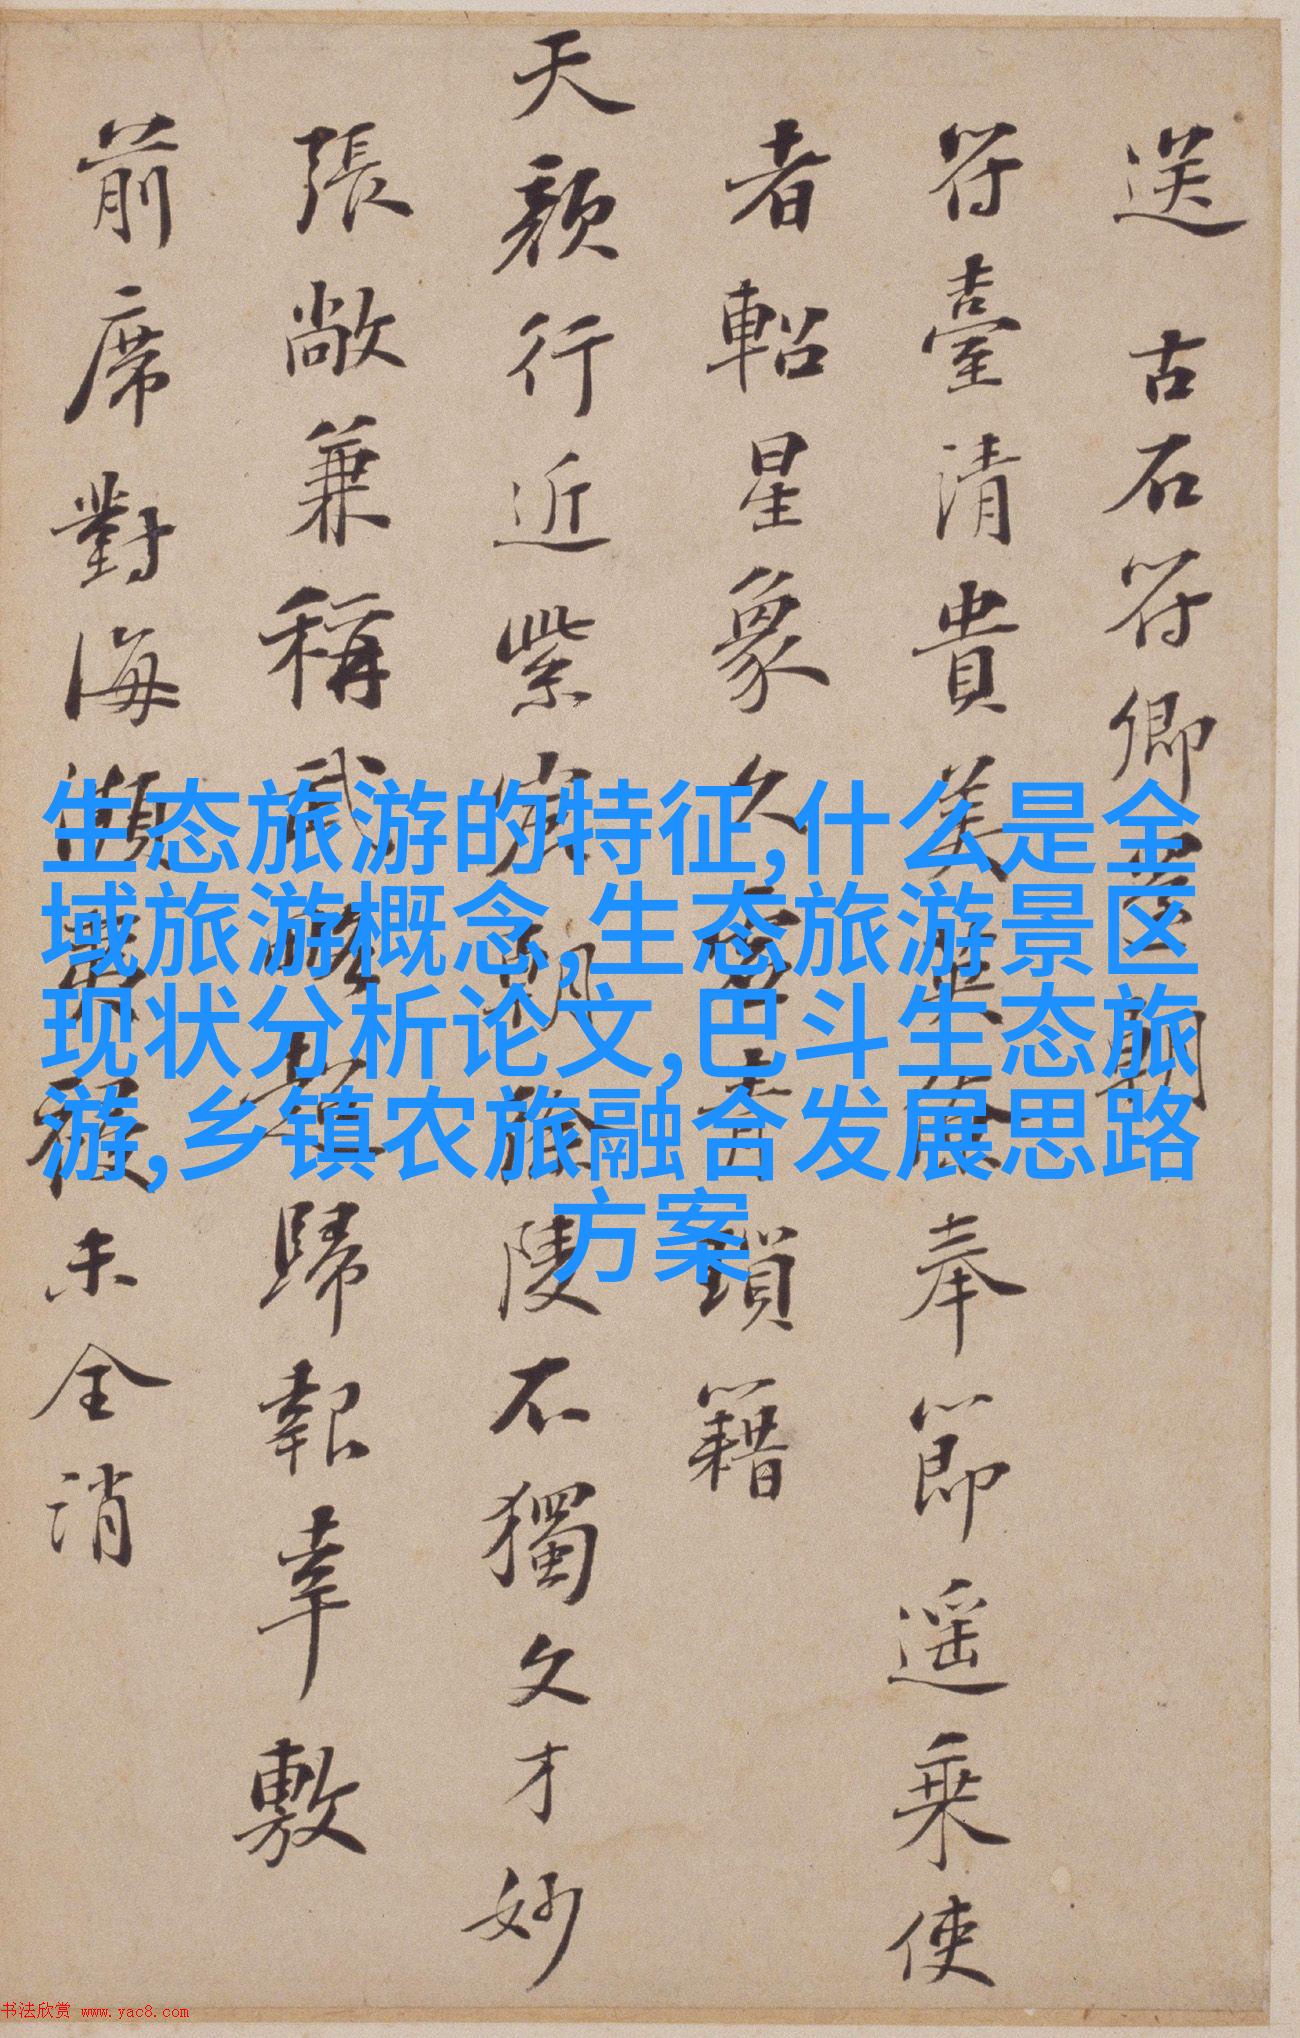 送 古石符卿
符臺清貴美無餘奉節遥乘使
者軺星象久青瑣籍
天顏行近紫宸朝徐陵不獨文才妙
張敞兼稱武略超歸報幸敷
前席對海瀕役未全消
生态旅游的特征,什么是全
域旅游概念,生态旅游景区
现状分析论文,巴斗生态旅
游,乡镇农旅融合发展思路
方案
书法欣赏 www.yac8.com